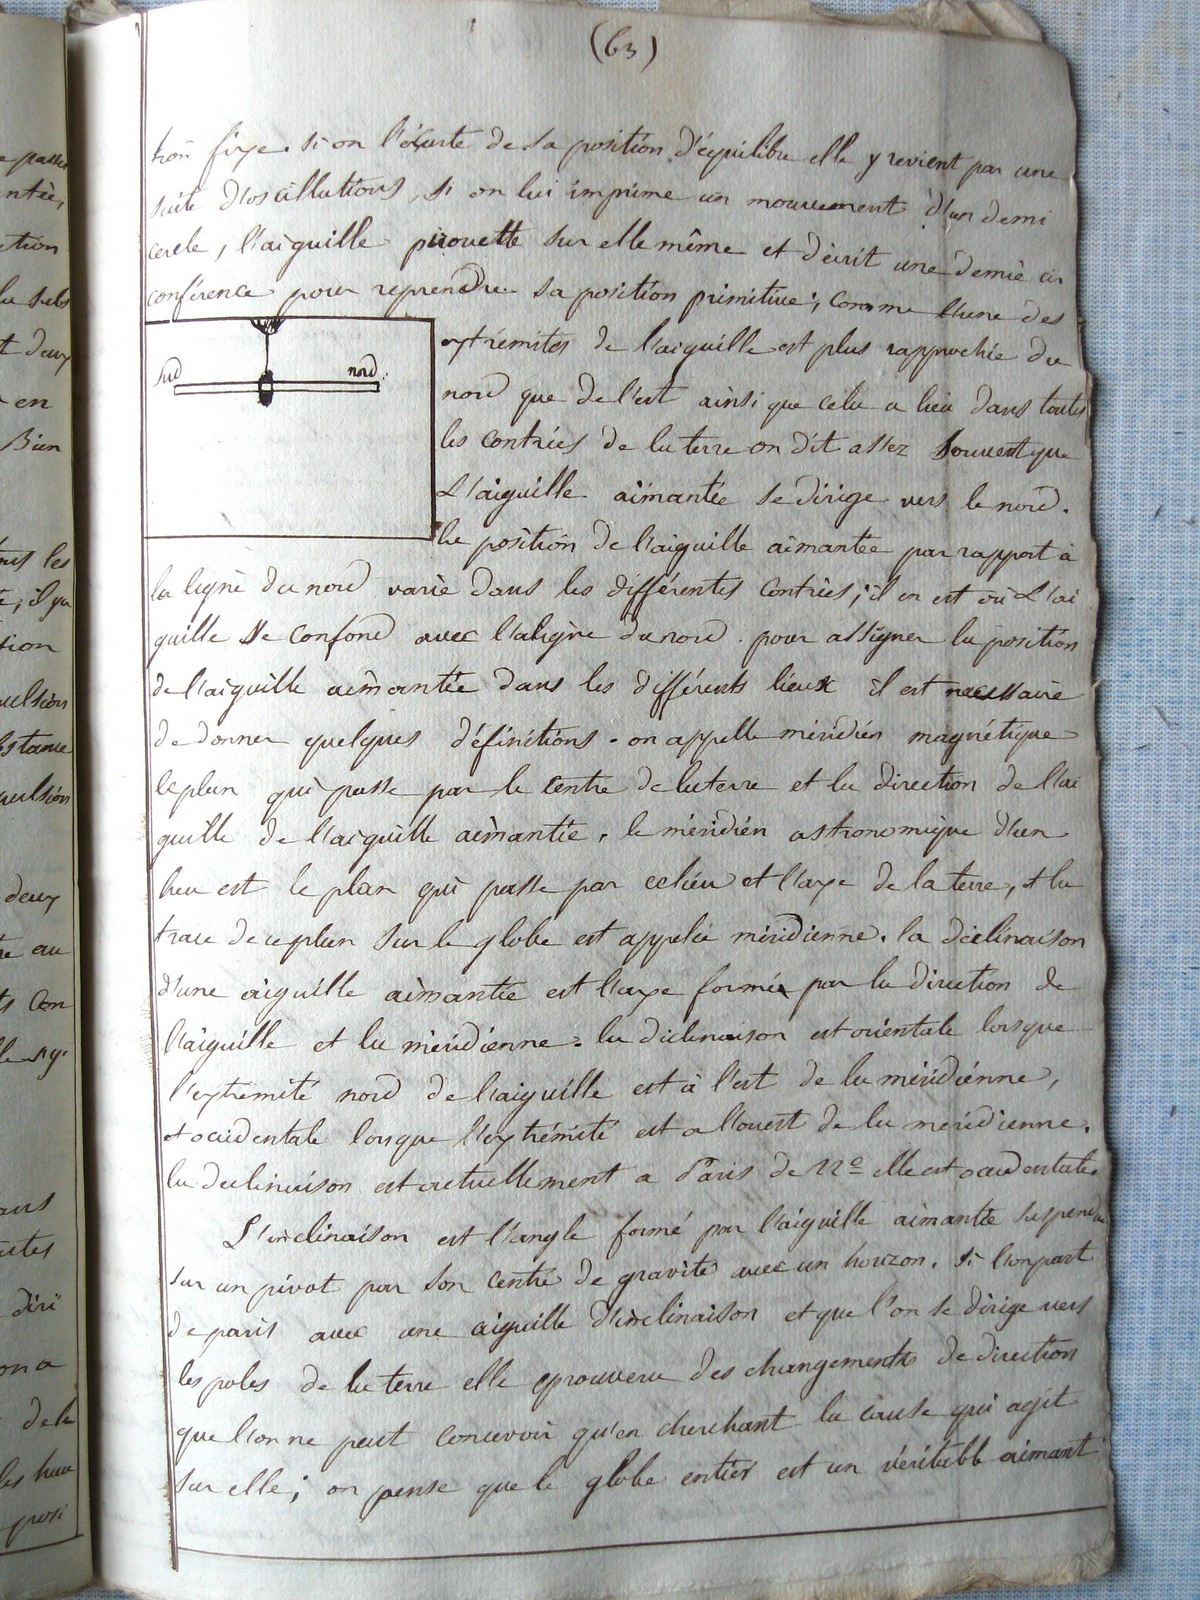 (63)
tion fixe. si on l'écarte de sa position d'équilibre elle y revient par une
suite d'oscillations, si on lui imprime un mouvement d'un demi
cercle, l'aiguille pirouette sur elle même et décrit une demie cir
conférence pour reprendre sa position primitive; comme l'une des
extrémités de l'aiguille est plus rapprochée du
nord que de l'est ainsi que cela a lieu dans toutes
les contrées de la terre on dit assez souvent que
L'aiguille aimantée se dirige vers le nord.
la position de l'aiguille aimantée par rapport à
sud nord
la ligne du nord varie dans les différentes contrées; il en est où L'ai
guille se confond avec la ligne du nord. pour assigner la position
de l'aiguille aimantée dans les différents lieux il est necessaire
de donner quelques définitions. on appelle méridien magnétique
le plan qui passe par le centre de la terre et la direction de l'ai
guille de l'aiguille aimantée. le méridien astronomique d'un
lieu est le plan qui passe par ce lieu et l'axe de la terre, et la
trace de ce plan sur le globe est appelée méridienne. la déclinaison
d'une aiguille aimantée est l'axe formée par la direction de
l'aiguille et la méridienne. la déclinaison est orientale lorsque
l'extrémité nord de l'aiguille est à l'est de la méridienne,
et occidentale lorsque l'extrémité est a l'ouest de la méridienne.
la déclinaison est actuellement a Paris de 22° elle est occidentale.
L'inclinaison est l'angle formé par l'aiguille aimantée suspendue
sur un pivot par son centre de gravité avec un horizon. si l'on part
de paris avec une aiguille d'inclinaison et que l'on se dirige vers
les poles de la terre elle eprouvera des changements de direction
que l'on ne peut concevoir qu'en cherchant la cause qui agit
sur elle; on pense que le globe entier est un véritable aimant